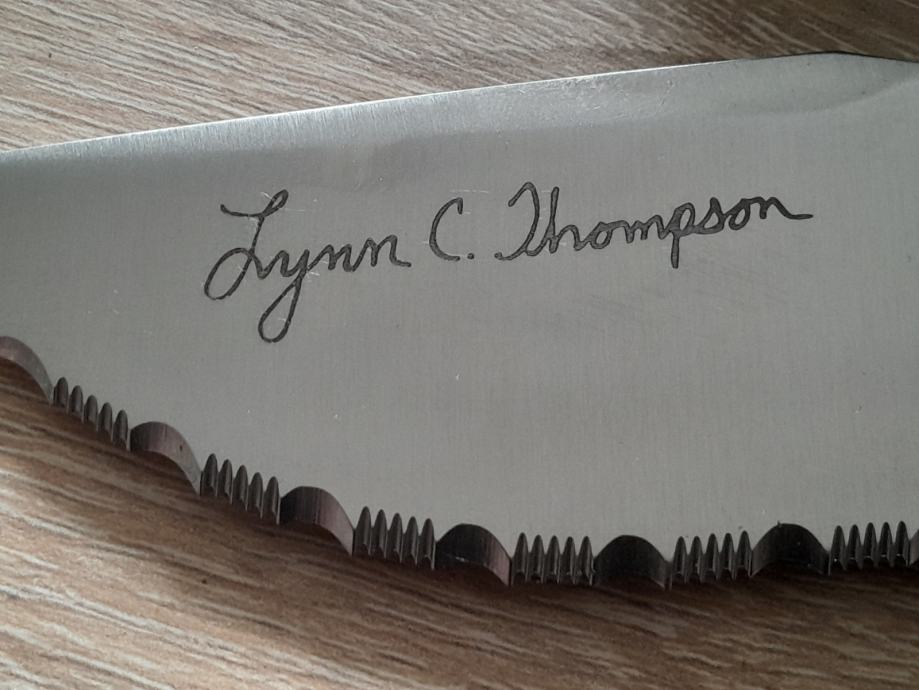 Lynn C. Thompson